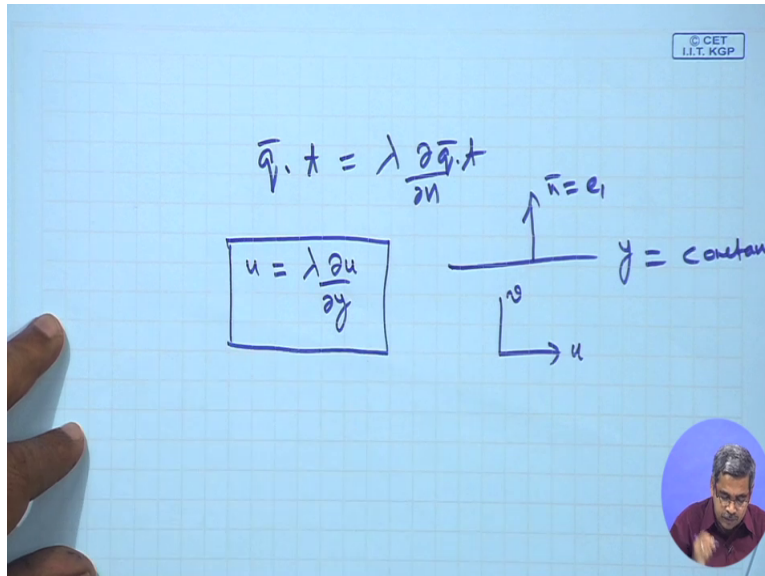 © CET
I.I.T. KGP
q̄. t = λ ∂q̄.t / ∂n
n̄ = e₁
u = λ ∂u / ∂y
y = constan
v
u